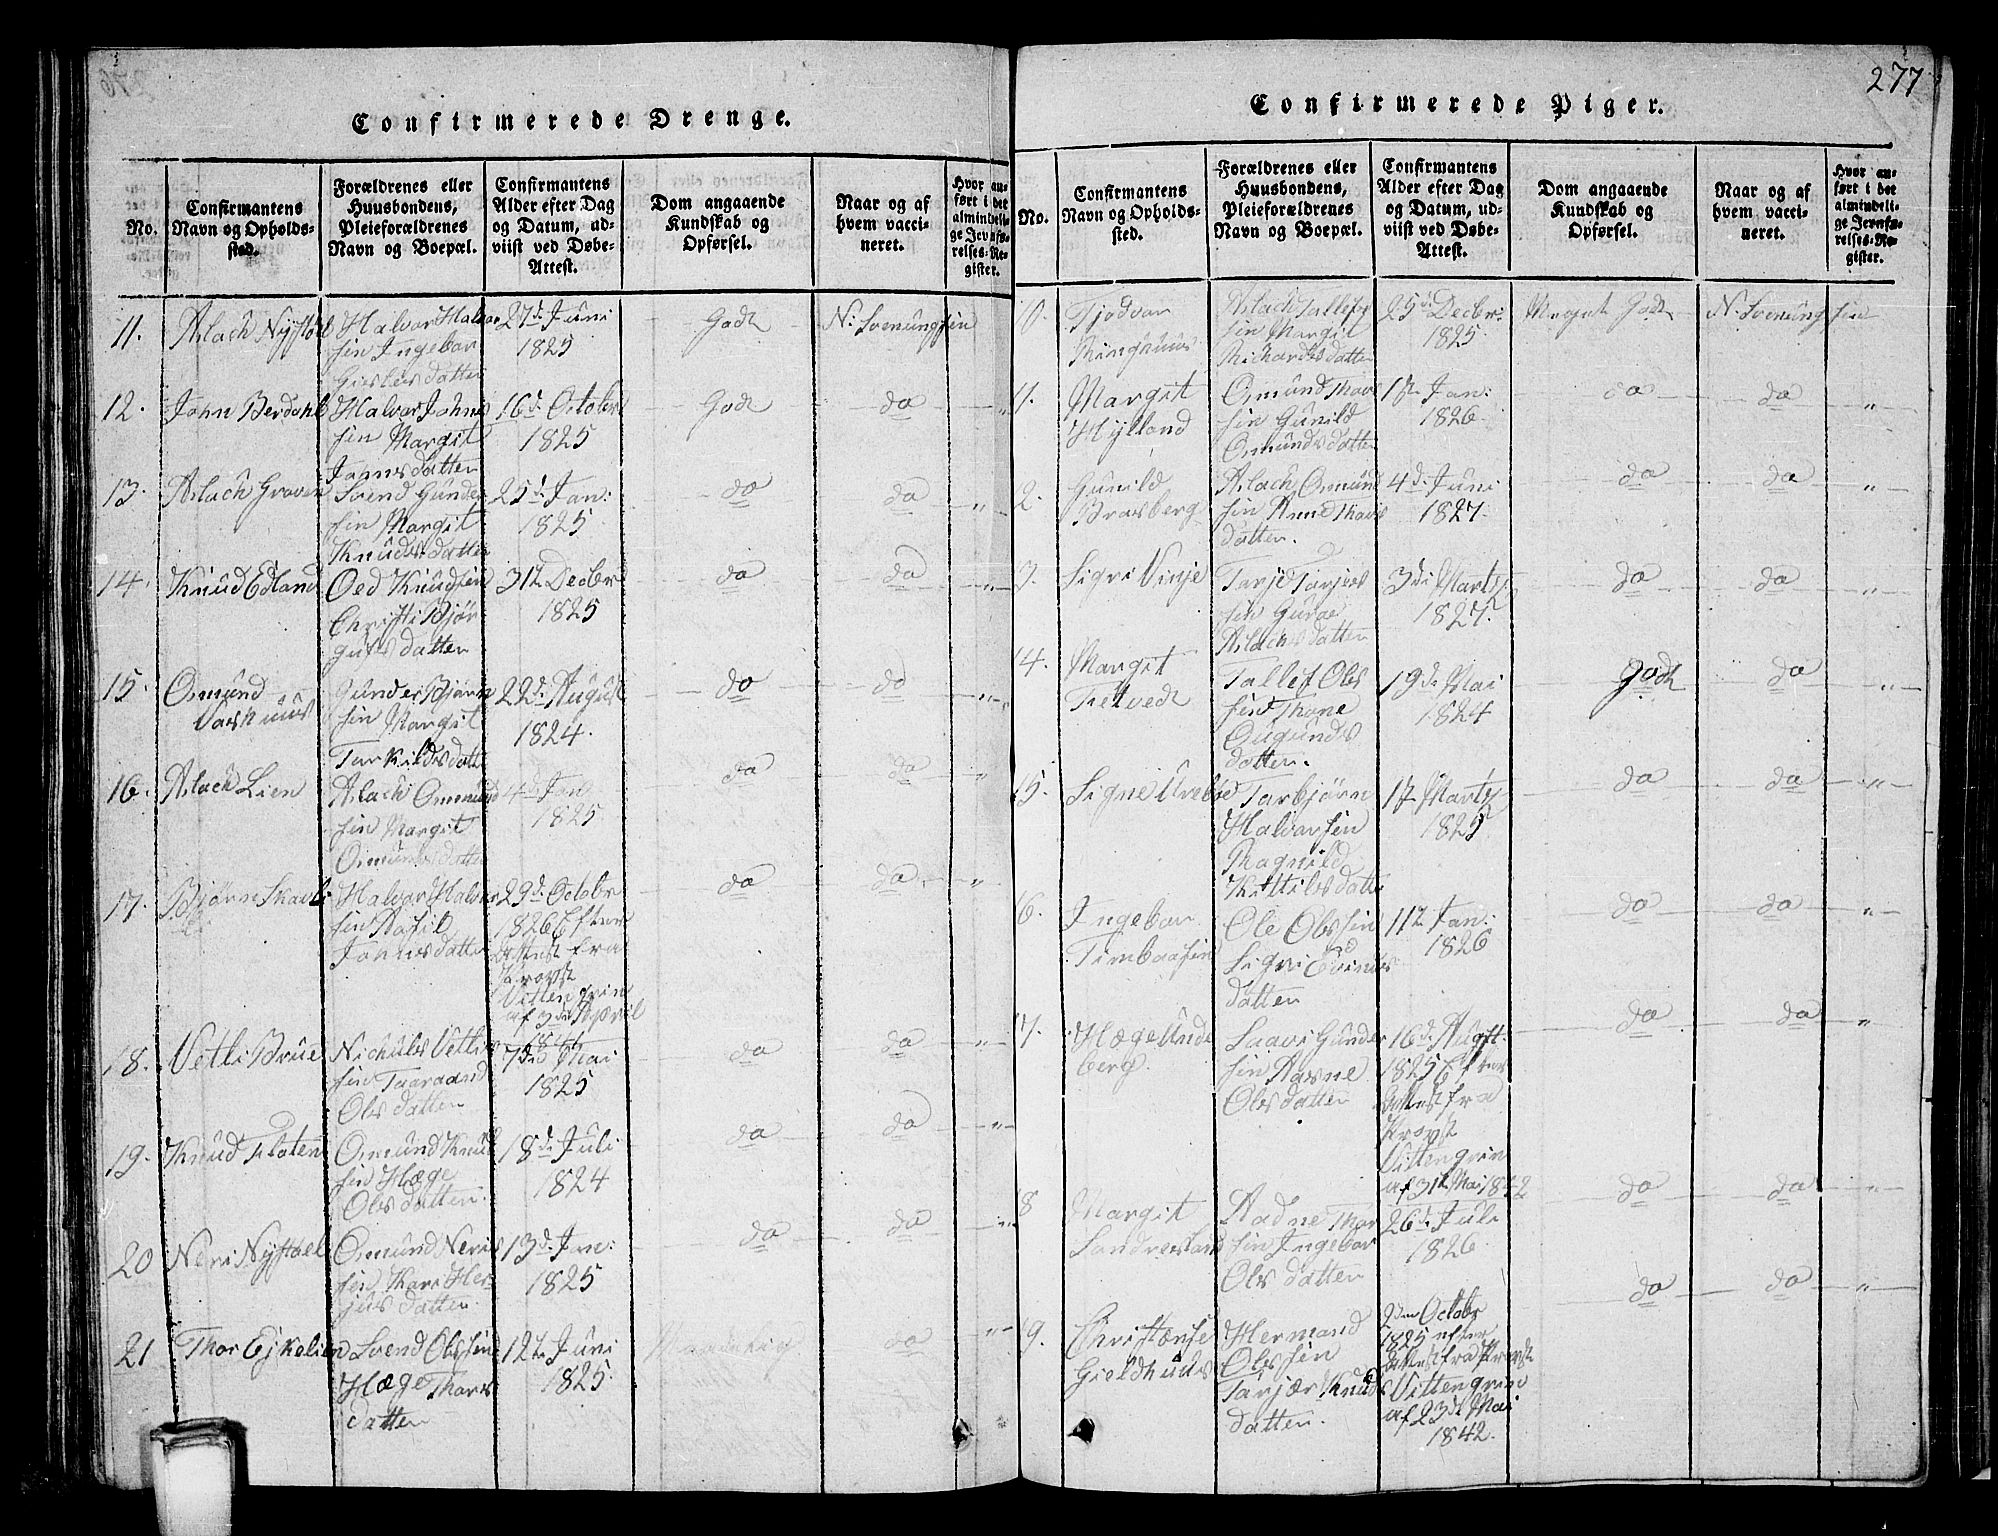 277
Confirmerede Drenge.
No.
Confirmantens
Navn og Opholds-
sted.
Forældrenes eller
Huusbondens,
Pleieforældrenes
Navn og Boepæl.
Confirmantens
Alder efter Dag
og Datum, ud-
viist ved Døbe-
Attest.
Dom angaaende
Kundskab og
Opførsel.
Naar og af
hvem vacci-
neret.
Hvor an-
ført i det
almindeli-
ge Jevnfø-
relses-Re-
gister.
11.
Aslach Nystøel
Halvor Halvor
sin Ingebor
Gislesdatter
27de Juni
1825
Godt
N. Svenungsen
12.
John Berdahl
Halvor Johns
sin Margit
Johnsdatter
16de October
1825
Godt
do
"
13.
Aslach Groven
Svend Gunder
sin Margit
Knudsdatter
25de Jan:
1825
do
do
"
14.
Knud Edland
Oed Knudsen
Christi Bjør
gufsdatter
31te Decbr
1825
do
do
"
15.
Omund
Vashuus
Gunder Bjørn
sin Margit
Tarkildsdatt
22de August
1824.
do
do
"
16.
Aslach Lien
Aslach Ommund
sin Margit
Omundsdatter
4de Jan
1825
do
do
"
17.
Bjørn Skavli
Halvor Halvor
sin Aasil
Johnsdatter
29de Octobr
1826 Efter
Attest fra
Provst
Vittengrin
af 3die April
do
do
"
18.
Vetli Brue
Nichuls Vetli
sin Taaraand
Olsdatter
7de Mai
1825
do
do
"
19.
Knud Floten
Omund Knud
sin Hæge
Olsdatter.
18de Juli
1824
do
do
"
20
Neri Nystøel
Omund Neris
sin Kari Her-
jusdatter.
13de Jan:
1825
do
do
"
21
Thor Ejkelien
Svend Olssin
Hæge Thors
datter
12te Juni
1825.
do
"
Confirmerede Piger.
No.
Confirmantens
Navn og Opholds-
sted.
Forældrenes eller
Huusbondens,
Pleieforældrenes
Navn og Boepæl.
Confirmantens
Alder efter Dag
og Datum, ud-
viist ved Døbe-
Attest.
Dom angaaende
Kundskab og
Opførsel.
Naar og af
hvem vacci-
neret.
Hvor an-
ført i det
almindeli-
ge Jevnfø-
relses-Re-
gister.
10.
Tjodvor
Ringhuus
Aslach Tallefs
sin Margit
Richardsdatter
25de Decbr:
1825.
Meget Godt
N. Svenungsen
11.
Margit
Hylland
Omund Thors
sin Gunild
Omundsdatter
1ste Jan:
1826.
do
do
"
2.
Gunild
Brosberg
Aslach Omund
sin Anne Thors
datter.
4de Juni
1827.
do
do
"
3.
Sigri Vinje
Tarje Tarjes
sin Guroe
Aslachsdatter
3die Marts
1827.
do
do
"
14.
Margit
Tretvedt
Tallef Ols
sin Thone
Ougunds
datter.
19de Mai
1824
Godt
do
"
15.
Signe Urebøe
Tarbjørn
Halvorsen
Ragnild
Kittilsdatter
17 Marts
1825
do
do
"
6.
Ingebor
Timbaasin
Ole Olssin
Sigri Evinds
datter
11te Jan:
1826
do
do
"
17.
Hæge Unde
berg.
Saavi Gunder
sin Aasne
Olsdatter
16de Augst.
1825 Efter
Attest fra
Provst
Vittengrin
af 31te Mai 1842
do
do
"
18
Margit
Sandresland
Aadne Thor
sin Ingebor
Olsdatter
26de Juli
1826.
do
do
"
19.
Christense
Gieldhuus
Hermand
Olssin
Tarjær Knuds
datter.
2den Octobr
1825 efter
Attest fra Provst
Vittengrin
af 23de Mai
1842.
do
do
"